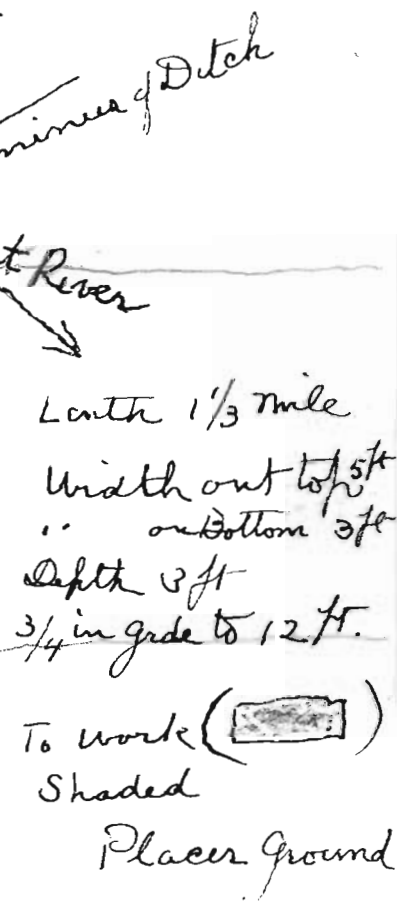 minus of Ditch
t River
Lenth 1 1/3 mile
Width out top 5 ft
" on Bottom 3 ft
Depth 3 ft
3/4 in grde to 12 ft.
To work ( )
Shaded
Placer Ground